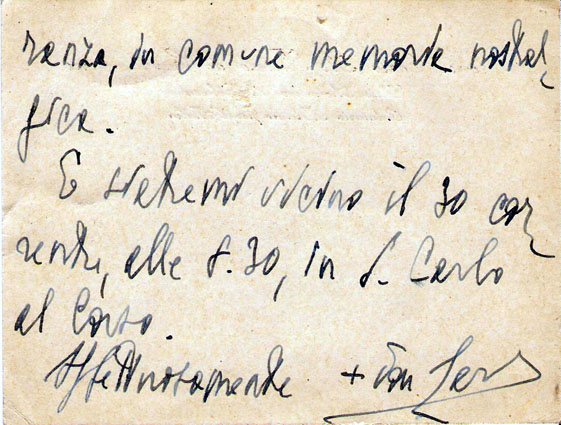 ranza, in comune memoria nostal-
gica.
E siatemi vicino il 30 cor-
rente, alle 8.30, in S. Carlo
al Corso.
Affettuosamente + don